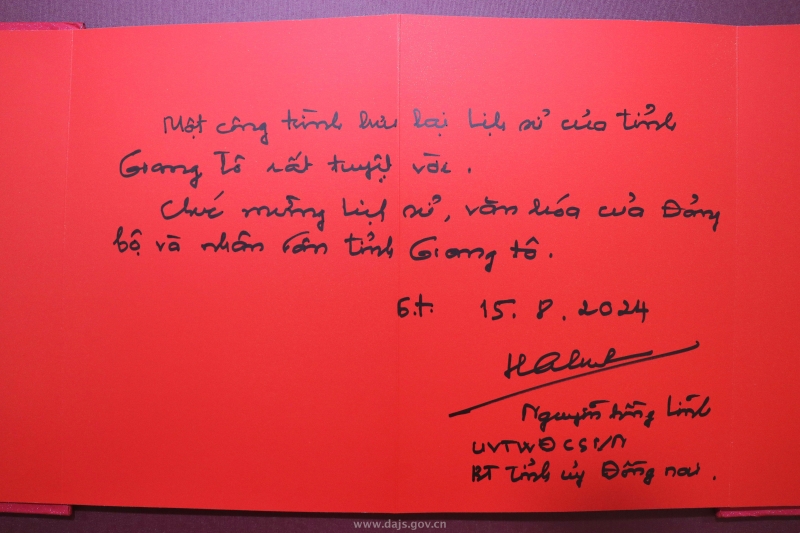 Một công trình lưu lại Lịch sử của tỉnh
Giang Tô rất tuyệt vời.
Chúc mừng Lịch sử, văn hóa của Đảng
bộ và nhân dân tỉnh Giang Tô.
G.t. 15.8.2024
Nguyễn Hồng Lĩnh
UVTWĐCSVN
BT Tỉnh ủy Đồng nai.
www.dajs.gov.cn